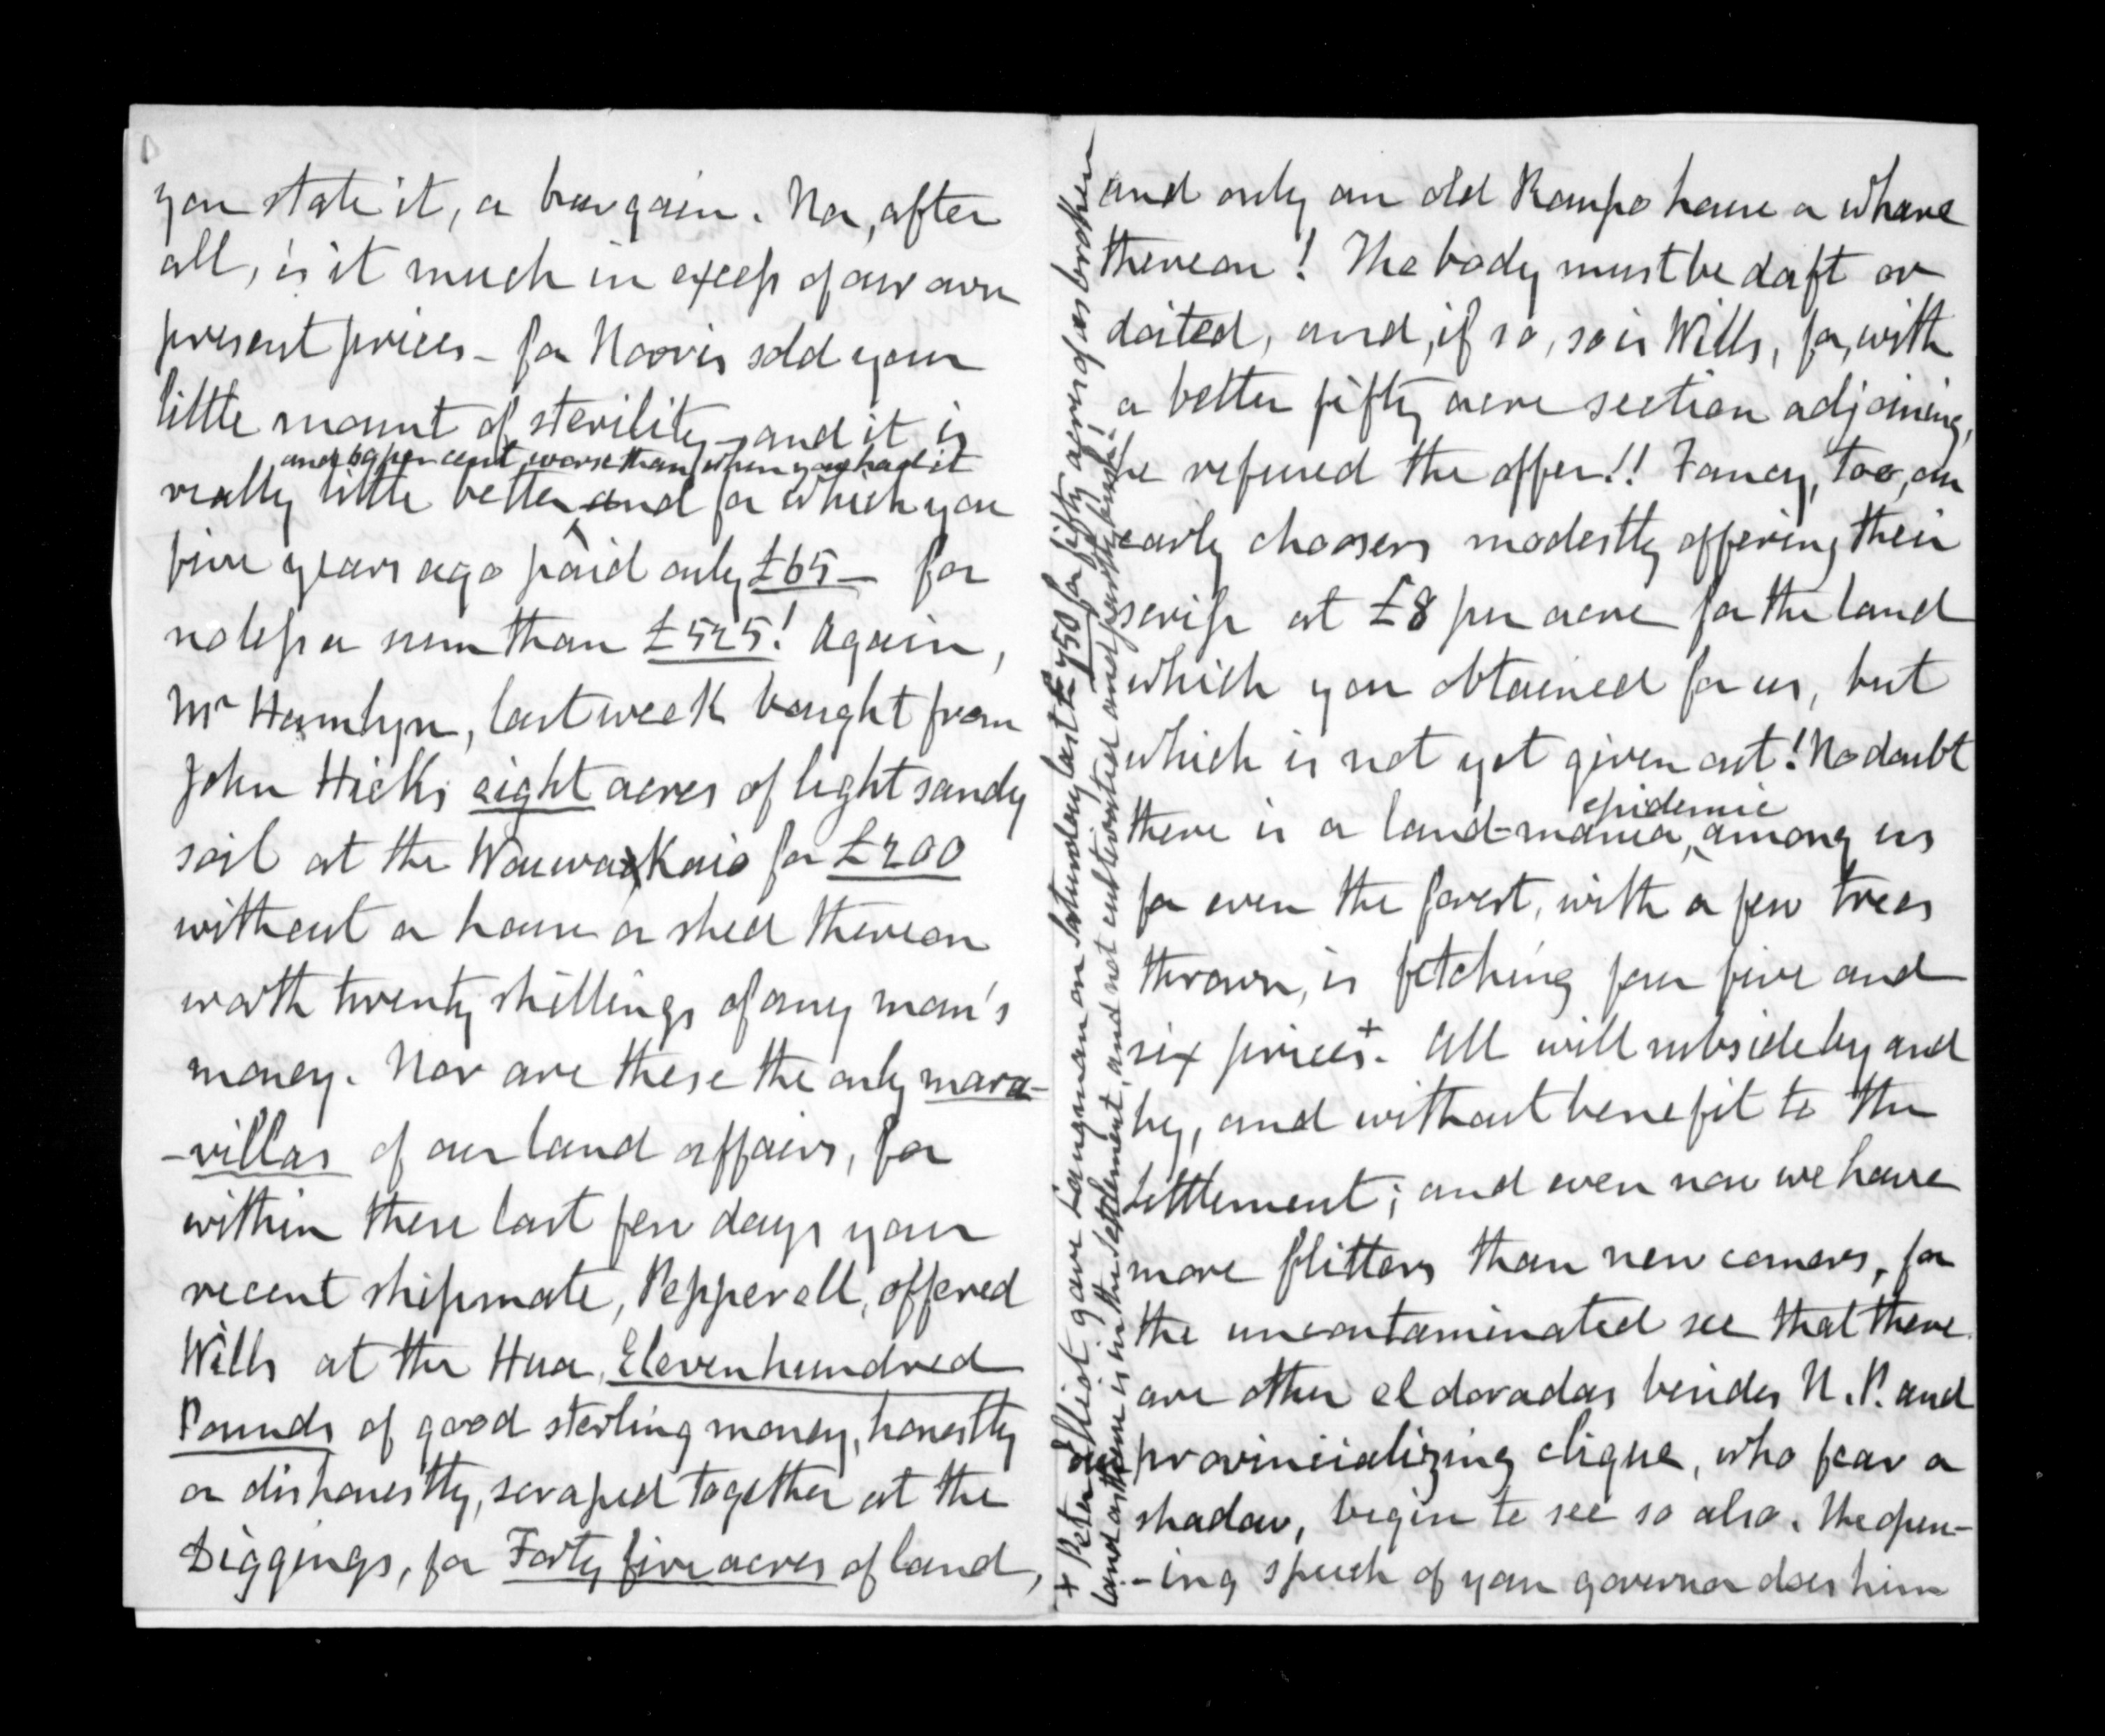 you state it, a bargain. Nor, after
all, is it much in excess of our own
present prices – for Norris sold your
little mount of sterility – and it is
and 50 per cent worse than when you had it
really little better and for which you
five years ago paid only £65 – for
no less a sum than £525! Again,
Mr Hamlyn, last week bought from
John Hicks eight acres of light sandy
soil at the Wauwakaio for £200
without a house or shed thereon
worth twenty shillings of any man's
money. Nor are these the only mara-
-villas of our land affairs, for
within these last few days your
recent shipmate, Pepperell, offered
Wills at the Hua, Eleven hundred
Pounds of good sterling money, honestly
or dishonestly, scraped together at the
Diggings, for Forty five acres of land,
and only an old Raupo house or whare
thereon! The body must be daft or
doited, and, if so, so is Wills, for, with
a better fifty acre section adjoining,
he refused the offer!! Fancy, too, our
early choosers modestly offering their
scrip at £8 per acre for the land
which you obtained for us, but
which is not yet given out! No doubt
epidemic
there is a land-mania, among us
for even the forest, with a few trees
thrown, is fetching four five and
six prices+. All will subside by and
by, and without benefit to the
settlement; and even now we have
more flitters than new comers, for
the uncontaminated see that there
are other el doradas besides N.P. and
our provincializing clique, who fear a
shadow, begin to see so also. The open-
-ing speech of your governor does him
+ Peter Elliot gave Langman on Saturday last £750 for fifty acres of as broken
land as there is in the settlement, and not cultivated and partly bush!